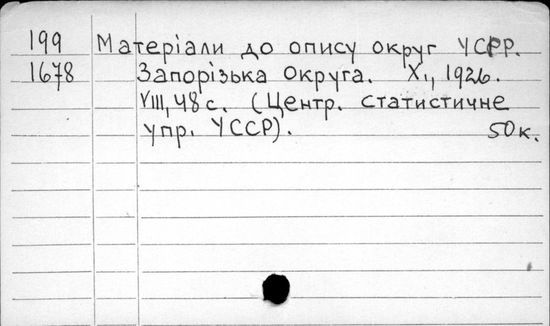 199 Матеріали до опису округ УСРР.
1678 Запорізька округа. Х., 1926.
VIII, 48 с. (Центр. статистичне
упр. УССР).   50 к.